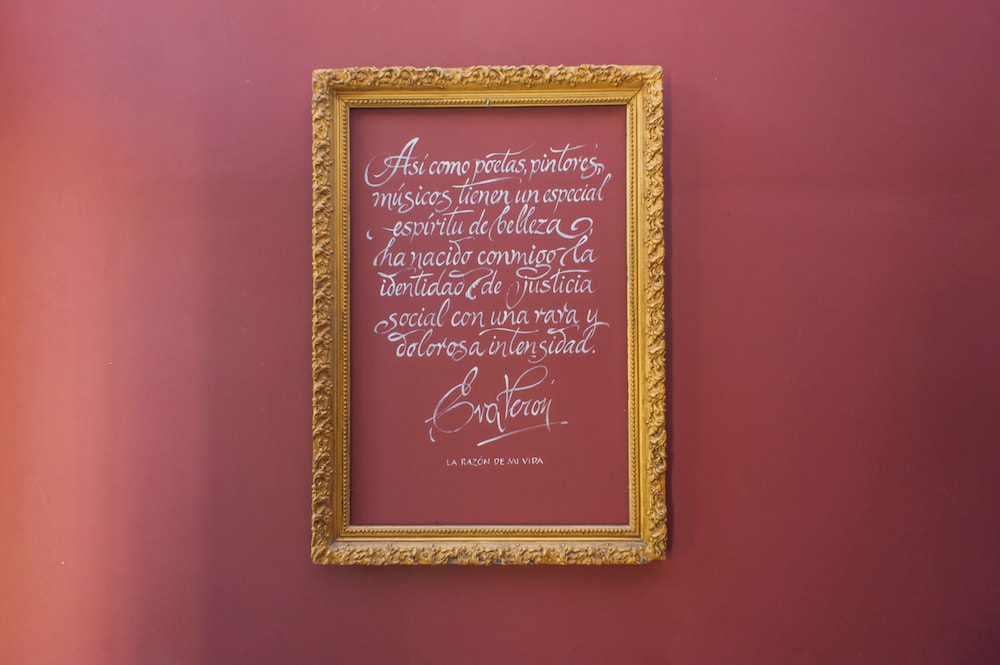 Así como poetas, pintores,
músicos tienen un especial
espíritu de belleza,
ha nacido conmigo la
identidad de justicia
social con una rara y
dolorosa intensidad.
Eva Perón
LA RAZÓN DE MI VIDA